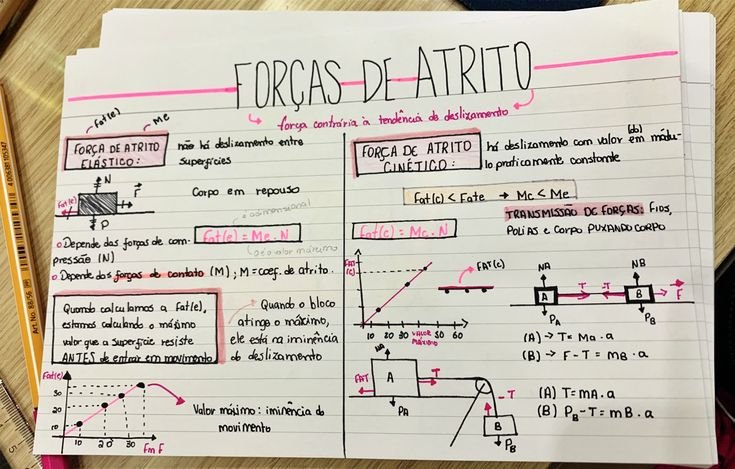 FORÇAS DE ATRITO
força contrária à tendência de deslizamento
Fat(e)
Me
FORÇA DE ATRITO
ELÁSTICO:
não há deslizamento entre
superfícies
N
Fat(e)
F
P
Corpo em repouso
é adimensional
Fat(e) = Me . N
é o valor máximo
Depende das forças de com-
pressão (N)
Depende das forças de contato (M); M = coef. de atrito.
Quando calculamos a Fat(e),
estamos calculando o máximo
valor que a superfície resiste
ANTES de entrar em movimento
Quando o bloco
atinge o máximo,
ele está na iminência
do deslizamento
Fat(e)
30
20
10
10 20 30 Fm F
Valor máximo: iminência do
movimento
FORÇA DE ATRITO
CINÉTICO:
há deslizamento com valor em módu-
lo praticamente constante
Fat(c) < Fate → Mc < Me
TRANSMISSÃO DE FORÇAS: FIOS,
POLIAS E CORPO PUXANDO CORPO
Fat(c) = Mc . N
FAT
(c)
FAT(c)
10 20 30 VALOR MÁXIMO 50 60
NA
NB
A
T
-T
B
F
PA
PB
(A) → T = Ma . a
(B) → F - T = mB . a
NA
FAT
A
T
PA
-T
B
PB
(A) T = mA . a
(B) PB - T = mB . a
Art. No. 88/56
4 00638 105347